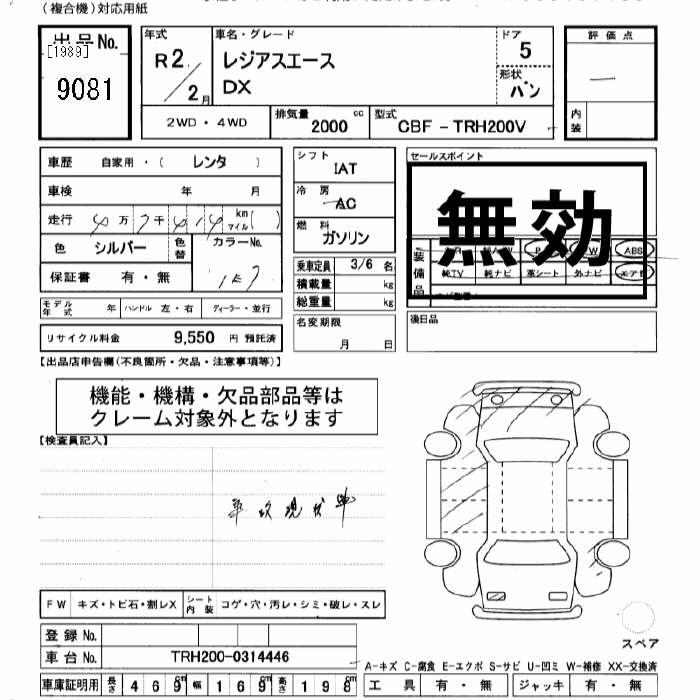 (複合機)対応用紙
出品No.
[1989]
9081
年式
R2/2月
車名・グレード
レジアスエース
DX
ドア
5
形状
バン
評価点
内装
2WD・4WD
排気量
2000 cc
型式
CBF-TRH200V
車歴 自家用・( レンタ )
車検 年 月
走行 万 千 km マイル( )
色 シルバー 色替 カラーNo.
1E7
保証書 有・無
シフト
IAT
冷房
AC
燃料
ガソリン
乗車定員 3/6 名
積載量 kg
総重量 kg
名変期限
月 日
セールスポイント
無効
装備品
ABS
純TV 純ナビ 革シート 外ナビ エアB
後日品
モデル年式 年 ハンドル 左・右 ディーラー・並行
リサイクル料金 9,550 円 預託済
【出品店申告欄(不良箇所・欠品・注意事項等)】
機能・機構・欠品部品等は
クレーム対象外となります
【検査員記入】
事故現状車
FW キズ・トビ石・割レX シート内装 コゲ・穴・汚レ・シミ・破レ・スレ
登録No.
車台No. TRH200-0314446
車庫証明用 長さ 469cm 幅 169cm 高さ 198cm
スペア
A-キズ C-腐食 E-エクボ S-サビ U-凹ミ W-補修 XX-交換済
工具 有・無 ジャッキ 有・無